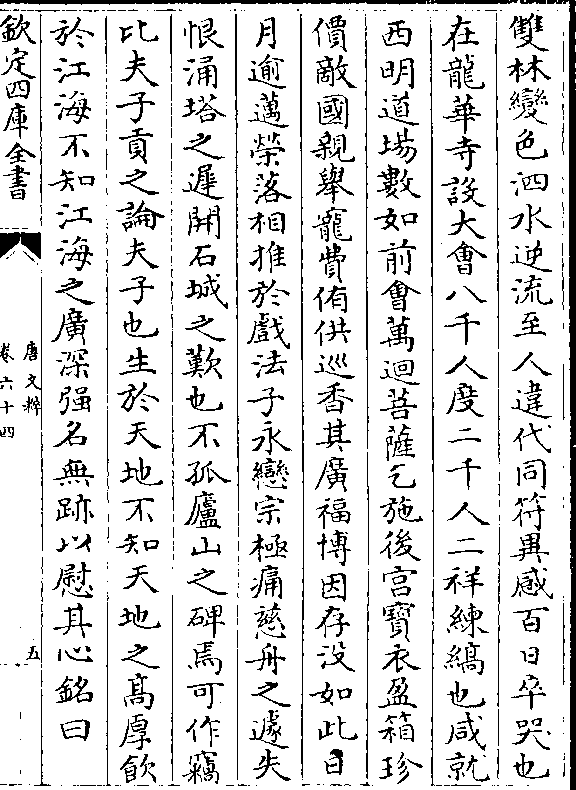 雙林變色泗水逆流至人違代同符異感百日卒哭也
在龍華寺設大會八千人度二千人二祥練縞也咸就
西明道場數如前會萬迴菩薩乞施後宫寳衣盈箱珍
價敵國親舉寵費侑供巡香其廣福博因存没如此日
月逾邁榮落相推於戲法子永戀宗極痛慈舟之遽失
恨涌塔之遲開石城之歎也不孤廬山之碑焉可作竊
比夫子貢之論夫子也生於天地不知天地之髙厚飲
於江海不知江海之廣深强名無跡以慰其心銘曰
欽定四庫全書
唐文粹
卷六十四
五